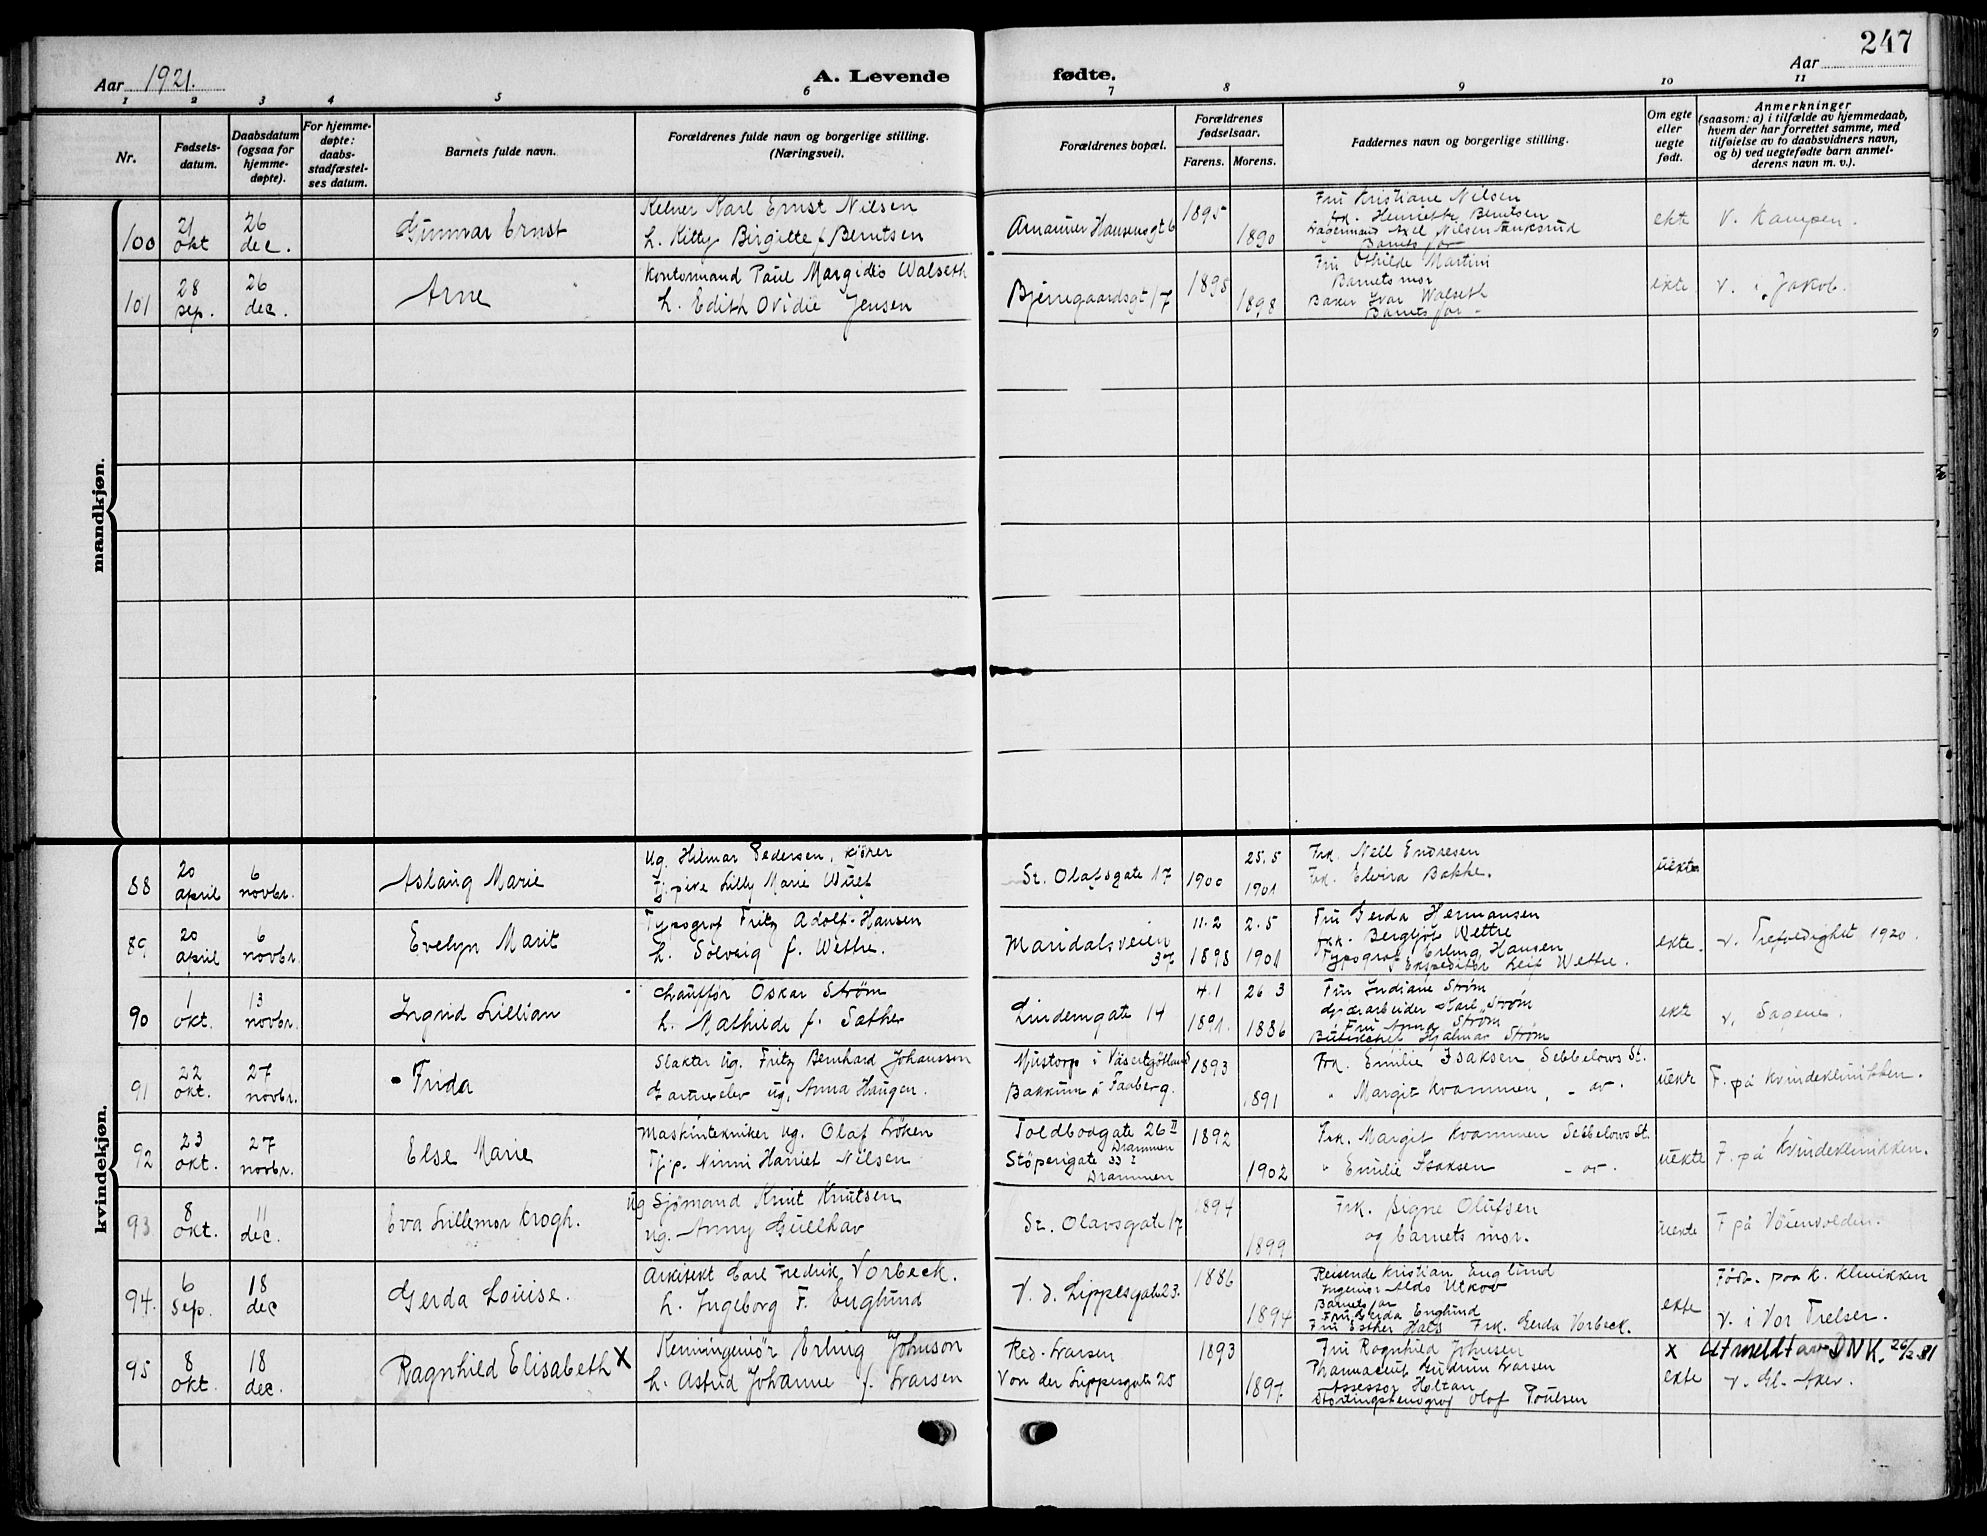 247
Aar 1921.
A. Levende fødte.
Aar
1 2 3 4 5 6 7 8 9 10 11
Nr.
Fødsels-
datum.
Daabsdatum
(ogsaa for
hjemme-
døpte).
For hjemme-
døpte:
daabs-
stadfæstel-
ses datum.
Barnets fulde navn.
Forældrenes fulde navn og borgerlige stilling.
(Næringsvei).
Forældrenes bopæl.
Forældrenes
fødselsaar.
Farens. Morens.
Faddernes navn og borgerlige stilling.
Om egte
eller
uegte
født.
Anmerkninger
(saasom: a) i tilfælde av hjemmedaab,
hvem der har forrettet samme, med
tilføielse av to daabsvidners navn,
og b) ved uegtefødte barn anmel-
derens navn m. v.).
mandkjøn.
100
21
okt
26
dec.
Gunnar Ernst
Kelner Karl Ernst Nilsen
h. Kitty Birgitte f. Berntsen
Amanuer Hansensgt 6
1895
1890
Fru Kristiane Nilsen
frk. Henriette Berntsen
Lagermand Axel Nilsen
Barnets far
ekte
v. Kampen.
101
28
sep.
26
dec.
Arne
Kontormand Paul Margido Walseth
h. Edith Ovidie Jensen
Bjerregaardsgt 17
1898
1898
Fru Othilde Martini
Barnets mor
Baker Ivar Walseth
Barnets far
ekte
v. i Jakob.
kvindekjøn.
88
20
april
6
novbr.
Aslaug Marie
Ug. Hilmar Pedersen, kjører
Tjpike Lilly Marie Wulf
St. Olafsgate 17
1900
25.5
1901
Frk. Nell Endresen
Frk. Elvira Bakke.
uekte
89
20
april
6
novbr.
Evelyn Marit
Typograf Fritz Adolf Hansen
h. Solveig f. Wettre.
Maridalsveien
37
11.2
1898
2.5
1901
Fru Gerda Hermansen
frk. Bergljot Wettre
Typograf Erling Hansen
Ekspeditør Leif Wettre.
ekte.
v. Trefoldighet 1920.
90
1
okt.
13
novbr.
Ingrid Lillian
Chauffør Oskar Strøm
h. Mathilde f. Sæther
Lindemgate 14
4.1
1891.
26 3
1886
Fru Indiane Strøm
Karl Strøm
Fru Anna Strøm
Hjalmar Strøm
ekte
v. Sagene.
91
22
okt.
27
novbr.
Frida
Slakter ug. Fritz Bernhard Johanssen
Gartnerelev ug. Anna Haugen.
Mustorp i Väsertgötland
Bakkum i Faaberg.
1893
1891
Frk. Emilie Isaksen Sebbelows St.
" Margit Kvammen, - " -
uekte
F. på kvindeklinikken.
92
23
okt.
27
novbr.
Else Marie
Maskintekniker ug. Olaf Løken
Tjp. Ninni Harriet Nilsen
Toldbodgate 26 II
Drammen
Støperigate 33 I
Drammen
1892
1902
Frk. Margit Kvammen Sebbelows St.
" Emilie Isaksen - " -
uekte
F. på kvindeklinikken.
93
8
okt.
11
dec.
Eva Lillemor Krogh.
ug Sjømand Knut Knutsen
ug. Anny Gullhav
St. Olavsgate 17
1894
1899
Frk. Signe Olufsen
og barnets mor.
uekte
F på Vøienvolden.
94.
6
Sep.
18
dec
Gerda Louise.
Arkitekt Carl Fredrik Vorbeck.
h. Ingeborg F. Englund
V. d. Lippesgat 23.
1886
1894
Reisende Kristian Englund
Ingeniør Aldo Utkov
Barnets far
Fru Gerda Englund
Fru Esther Hals Frk. Gerda Vorbeck.
ekte
Født paa K. klinikken
v. i Vor Frelser.
95
8
okt.
18
dec.
Ragnhild Elisabeth X
Kemiingeniør Erling Johnson
h. Astrid Johanne f. Larsen
Red. Larsen
Von der Lippesgate 25
1893
1897.
Fru Ragnhild Johnsen
Pharmaceut Gudrun Larsen
Assessor Holtan
Stortingstenograf Olaf Poulsen
X
ekte
Utmeldt av DNK. 26/2-81
v. Gl. Aker.